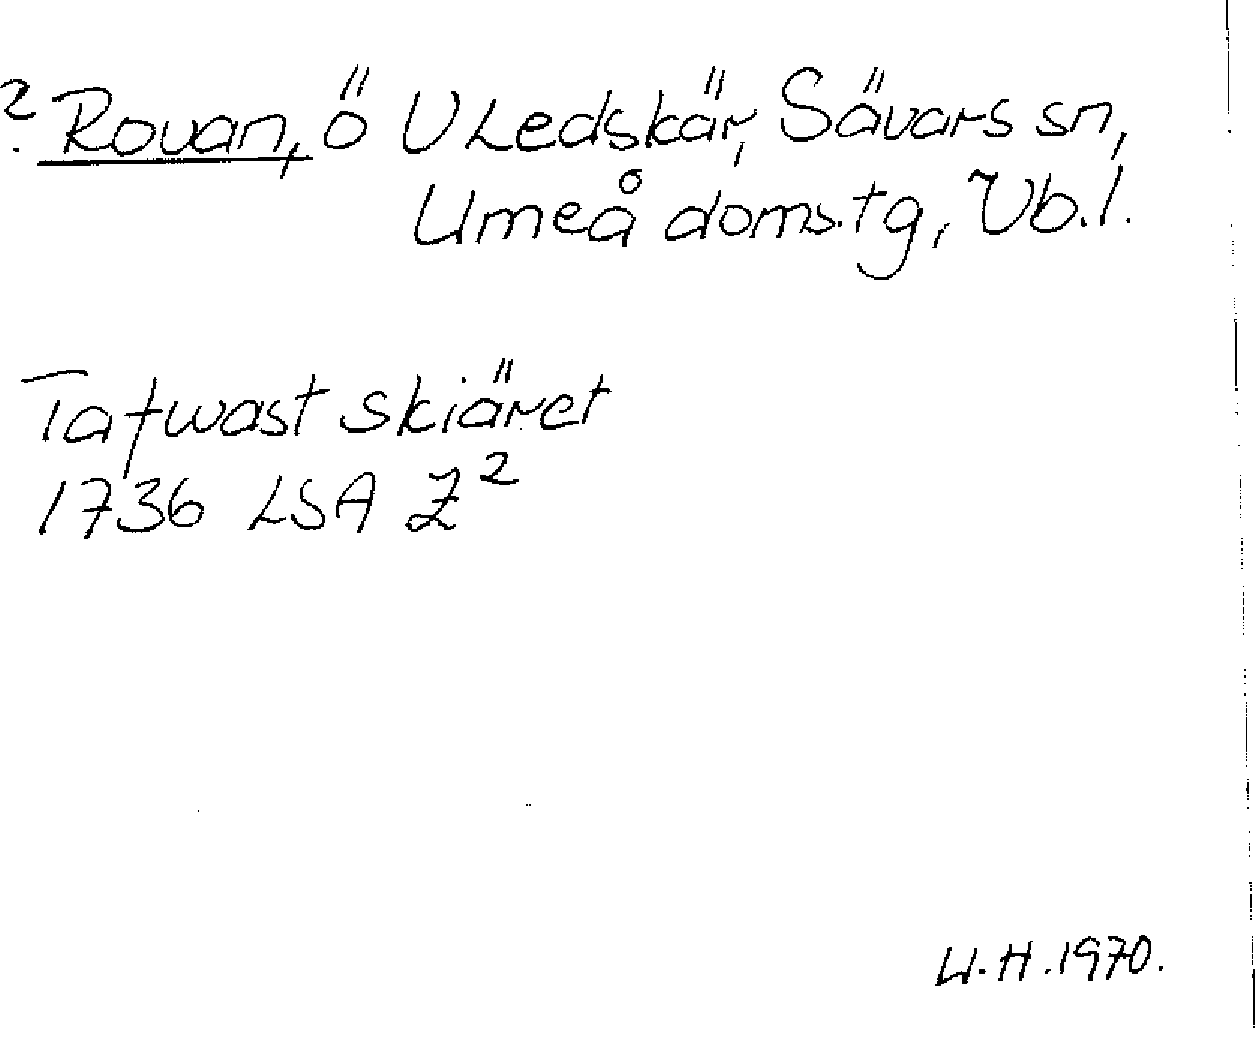 ? Rovan, ö V Ledskär, Sävars sn,
Umeå doms.tg, Vb.l.
Tafwast skiäret
1736 LSA Z²
U.H. 1970.